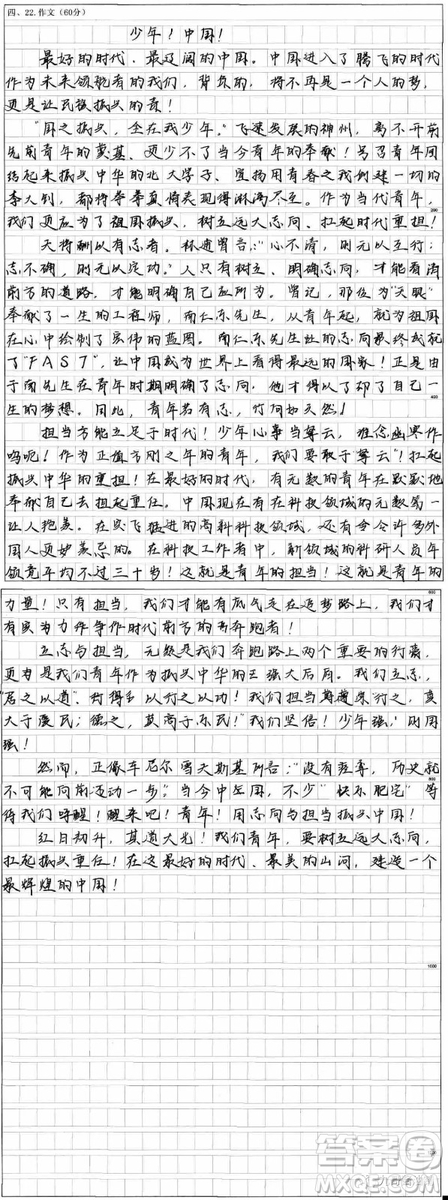 四、22.作文(60分)
少年！中国！
最好的时代，最辽阔的中国。中国进入了腾飞的时代
作为未来领航者的我们，背负的，将不再是一个人的梦，
更是让民族振兴的责！
"国之振兴，全在我少年。"飞速发展的神州，离不开前
先前青年的奠基、更少不了当今青年的奉献！号召青年团
结起来振兴中华的北大学子、宣扬用青春之我创建一切的
李大钊，都将
表现得淋漓尽至。作为当代青年，
我们更应为了祖国振兴，树立远大志向、扛起时代重担！
200
天将酬以有志者。林逋曾言："心不清，则无以立行；
志不确，则无以定功。"人只有树立、明确志向，才能看清
前方的道路，才能明确自己
所为。曾记，那位为"天眼"
奉献了一生的工程师，南仁东先生，从青年起，就为祖国
在心中绘制了宏伟的蓝图。南仁东先生壮的志向最终成就
了"FAST"，让中国成为世界上看得最远的国家！正是由
于南先生在青年时期明确了志向，他才得以了却了自己一
400
生的梦想。因此，青年若有志，
担当方能立足于时代！少年心事当拏云，谁念幽寒作
呜呃！作为正值方刚之年的青年，我们要敢于拏云！扛起
振兴中华的重担！在最好的时代，有无数的青年在默默地
奉献自己去担起重任。中国现在有在科技领域的无数第一
让人艳羡。在突飞猛进的高科科技领域，还有令令许多外
国人更妒羡忌的。在科技工作者中，新领域的科研人员年
领竟平均不过三十岁！这就是青年的担当！这就是青年的
600
力量！只有担当，我们才能有底气走在追梦路上，我们才
有实力
作时代前方的奔跑者！
立志与担当，无疑是我们奔跑路上两个重要的行囊，
更为是我们青年作为振兴中华的
强大后盾。我们立志，
"居之以道"、
以行之以功！我们担当
行之，莫
大于溪民；
我们坚信！少年强！则国
强！
800
然而，正像车尼尔雪夫斯基所言："没有
，历史就
不可能向前迈动一步。"当今中国，不少"快乐肥宅"等
待我们呼醒！醒来吧！青年！用志向与担当振兴中国！
红日初升，其道大光！我们青年，要树立远大志向，
扛起振兴重任！在这最好的时代、最美的山河，建造一个
最辉煌的中国！
1000
答案圈